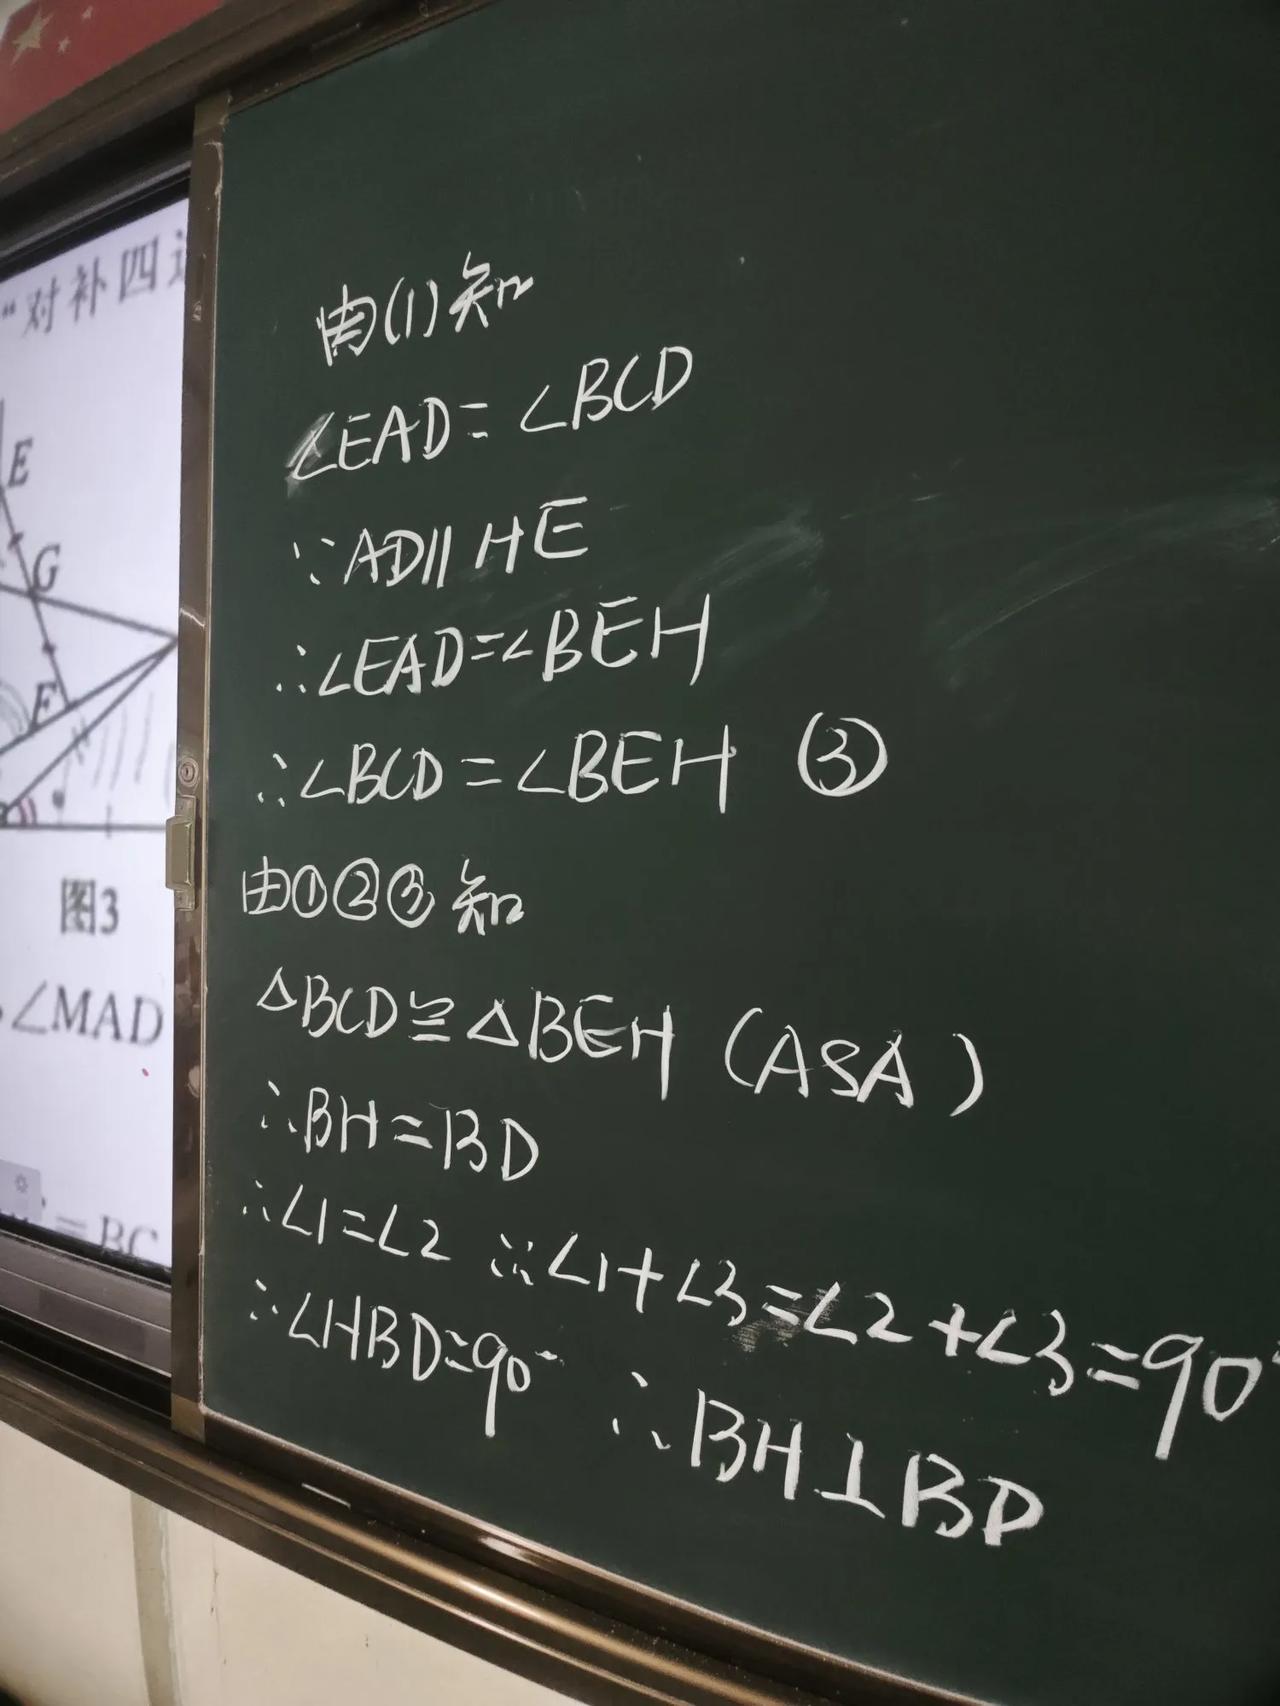 "对补四
E
G
F
图3
∠MAD
=BC
由(1)知
∠EAD=∠BCD
∵AD∥HE
∴∠EAD=∠BEH
∴∠BCD=∠BEH ③
由①②③知
△BCD≌△BEH (ASA)
∴BH=BD
∴∠1=∠2 ∴∠1+∠3=∠2+∠3=90°
∴∠HBD=90° ∴BH⊥BD